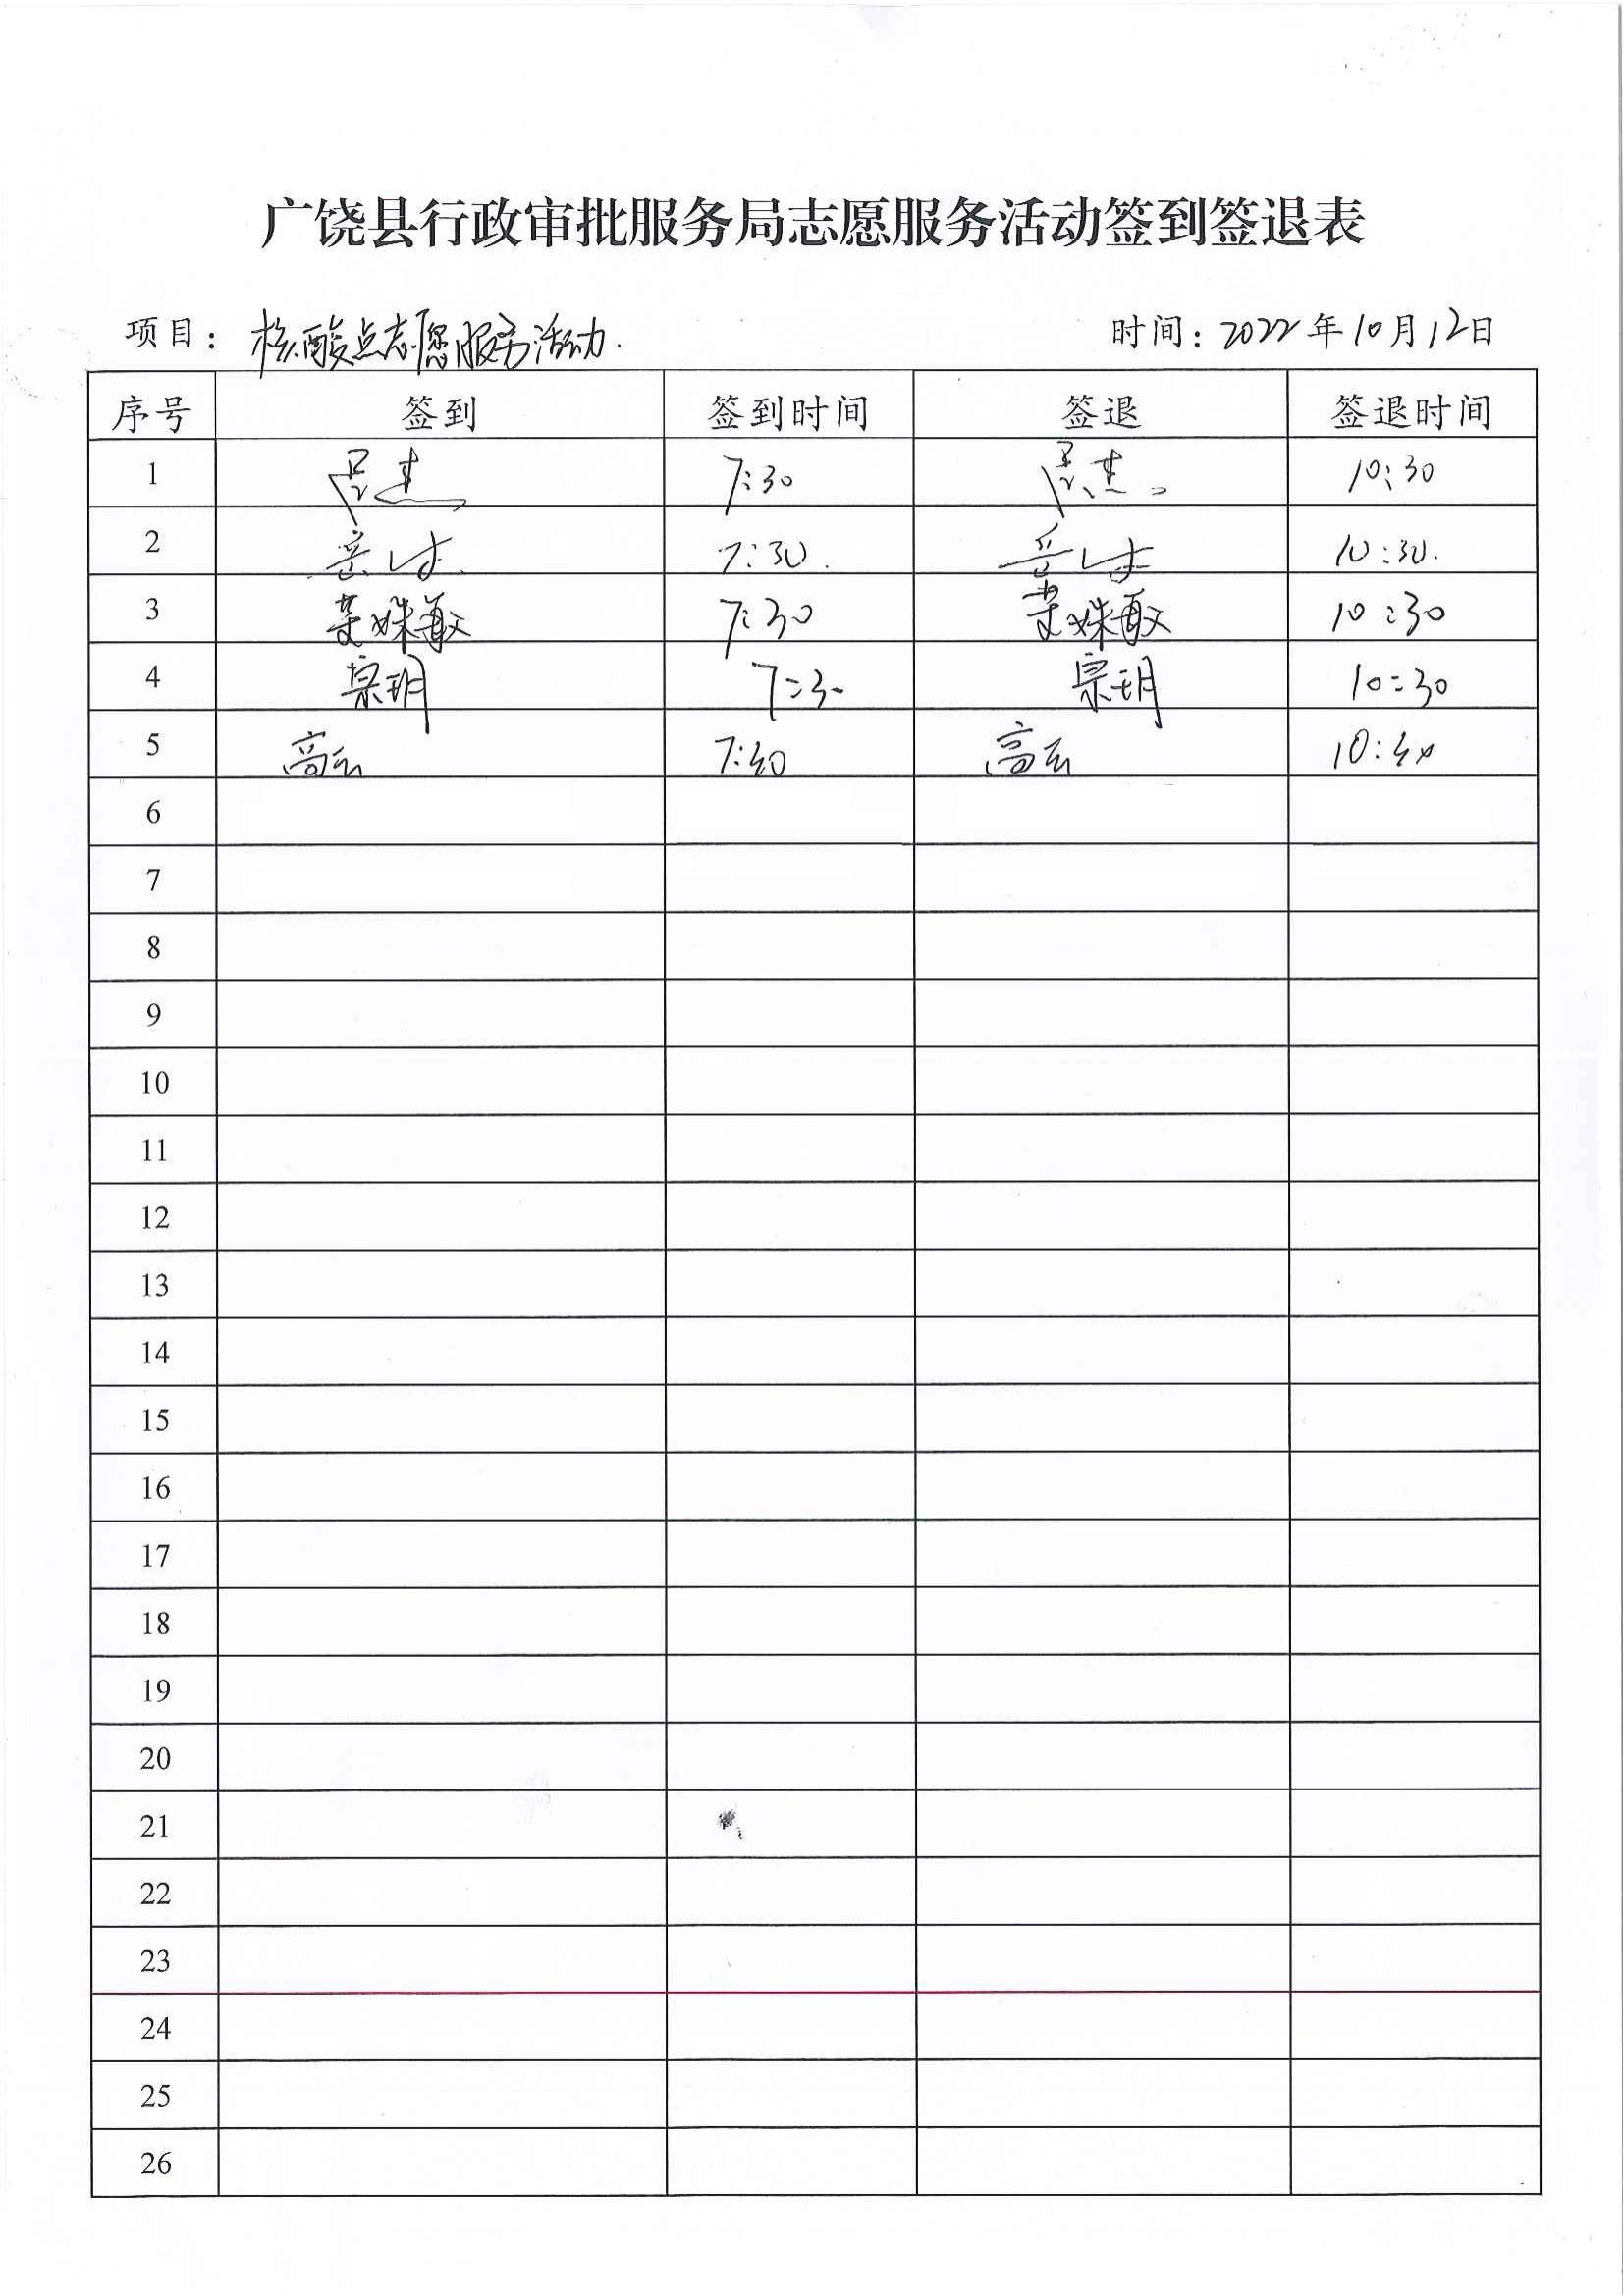 广饶县行政审批服务局志愿服务活动签到签退表
项目：核酸点志愿服务活动.
时间：2022年10月12日
序号 签到 签到时间 签退 签退时间
1 7:30 10:30
2 7:30. 10:30.
3 7:30 10:30
4 宗玥 7:30 宗玥 10:30
5 高云 7:30 高云 10:30
6
7
8
9
10
11
12
13
14
15
16
17
18
19
20
21
22
23
24
25
26